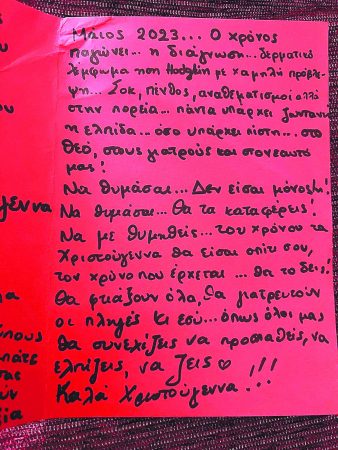 Μάιος 2023... Ο χρόνος
παγώνει... η διάγνωση... δερματικό
λέμφωμα non Hodgkin με χαμηλή πρόβλε-
ψη... Σοκ, πένθος, αναθεματισμοί αλλά
στην πορεία... πάντα υπάρχει ζωντανή
η ελπίδα... όσο υπάρχει πίστη... στο
Θεό, στους γιατρούς και στον εαυτό
μας!
Να θυμάσαι... Δεν είσαι μόνος/η!
Να θυμάσαι... Θα τα καταφέρεις!
Να με θυμηθείς... του χρόνου τα
Χριστούγεννα θα είσαι σπίτι σου,
τον χρόνο που έρχεται... θα το δεις!
Θα φτιάξουν όλα, θα γιατρευτούν
οι πληγές κι εσύ... όπως όλοι μας
θα συνεχίζεις να προσπαθείς, να
ελπίζεις, να ζεις ♡
Καλά Χριστούγεννα!!!